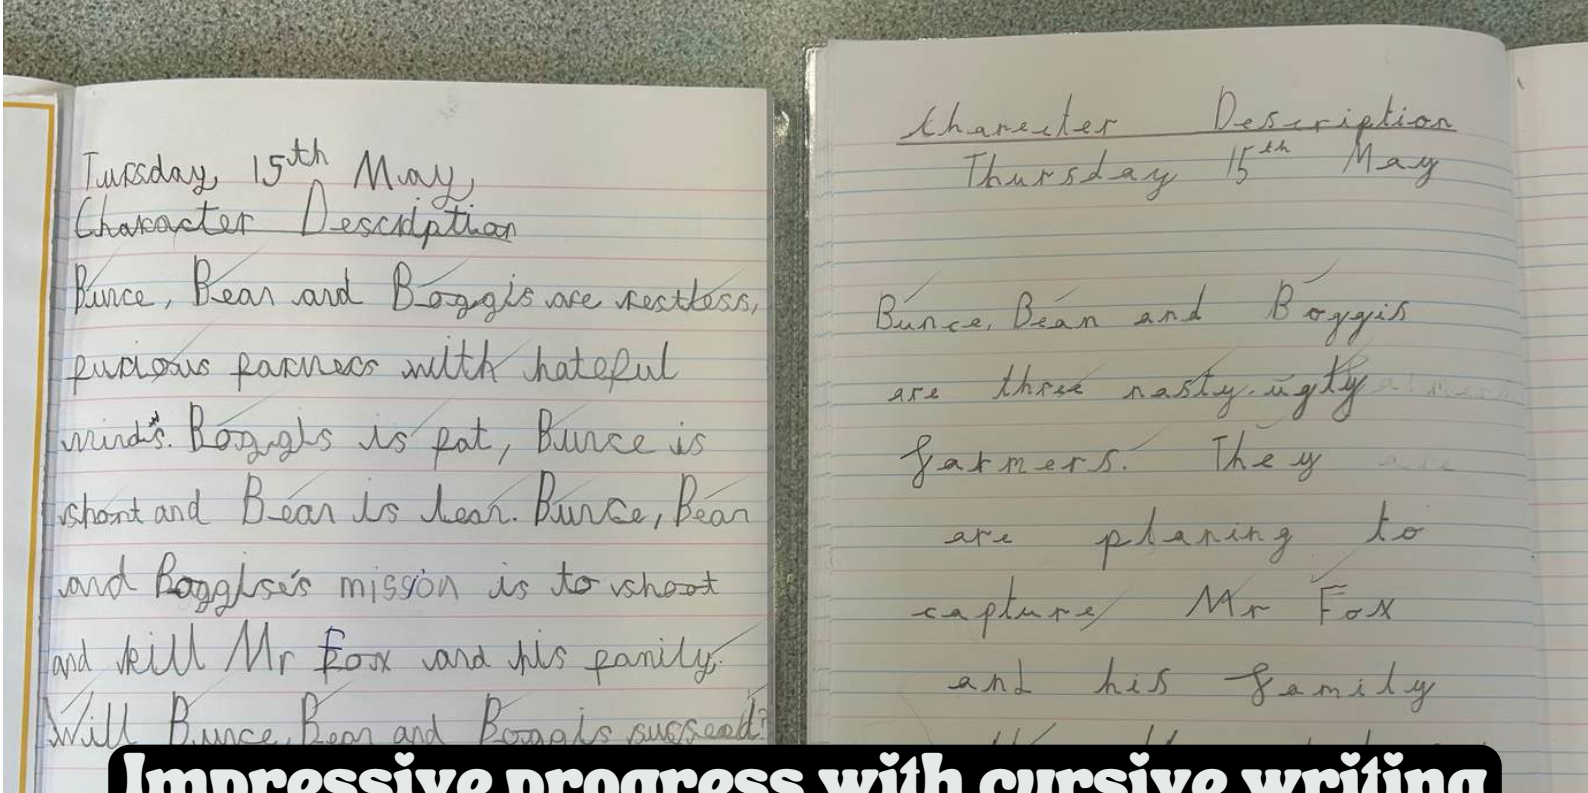 Tursday, 15th May,
Character Description
Bunce, Bean and Boggis are restless,
furious farmers with hateful
minds. Boggis is fat, Bunce is
short and Bean is lean. Bunce, Bean
and Boggise's mission is to shoot
and kill Mr Fox and his family.
Will Bunce, Bean and Boggis succeed?
Charecter Description
Thursday 15th May
Bunce, Bean and Boggis
are three nasty, ugly
farmers. They
are planing to
capture Mr Fox
and his family
Impressive progress with cursive writing